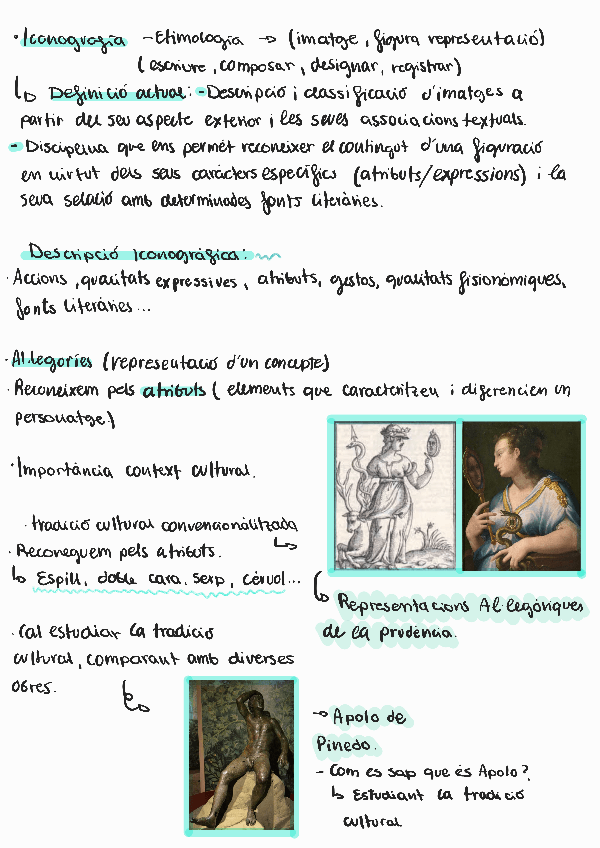 · Iconografia - Etimologia → (imatge, figura representació)
(escriure, composar, designar, registrar)
↳ Definició actual: - Descripció i classificació d'imatges a
partir del seu aspecte exterior i les seves associacions textuals.
- Disciplina que ens permet reconeixer el contingut d'una figuració
en virtut dels seus caràcters específics (atributs/expressions) i la
seva relació amb determinades fonts literàries.
Descripció Iconogràfica:
· Accions, qualitats expressives, atributs, gestos, qualitats fisionòmiques,
fonts literàries...
· Al·legories (representació d'un concepte)
· Reconeixem pels atributs (elements que caracteritzeu i diferencien un
personatge)
· Importància context cultural.
· tradició cultural convencionalitzada
· Reconeguem pels atributs.
↳ Espill, doble cara, serp, cérvol...
↳ Representacions Al·legòriques
de la prudència.
· Cal estudiar la tradició
cultural, comparant amb diverses
obres.
→ Apolo de
Pinedo.
- Com es sap que és Apolo?
↳ Estudiant la tradició
cultural